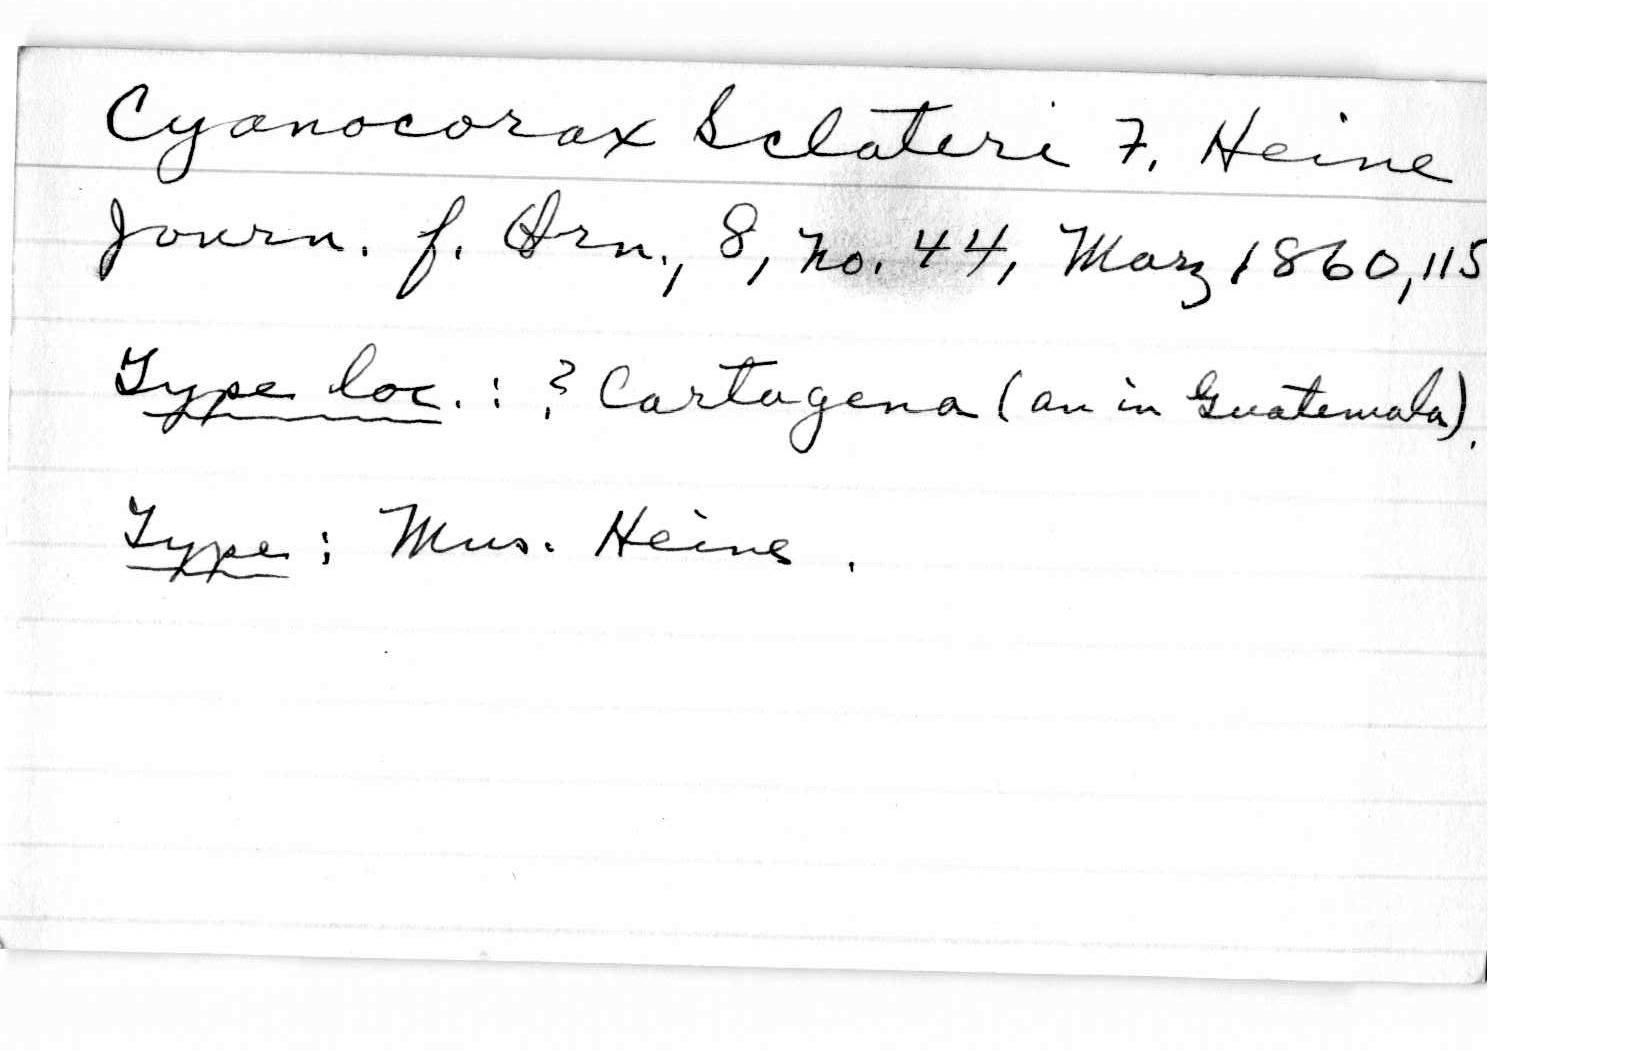 Cyanocorax Sclateri F. Heine
Journ. f. Orn., 8, no. 44, Marz 1860, 115
Type loc. : ? Cartagena (an in Guatemala).
Type : Mus. Heine .